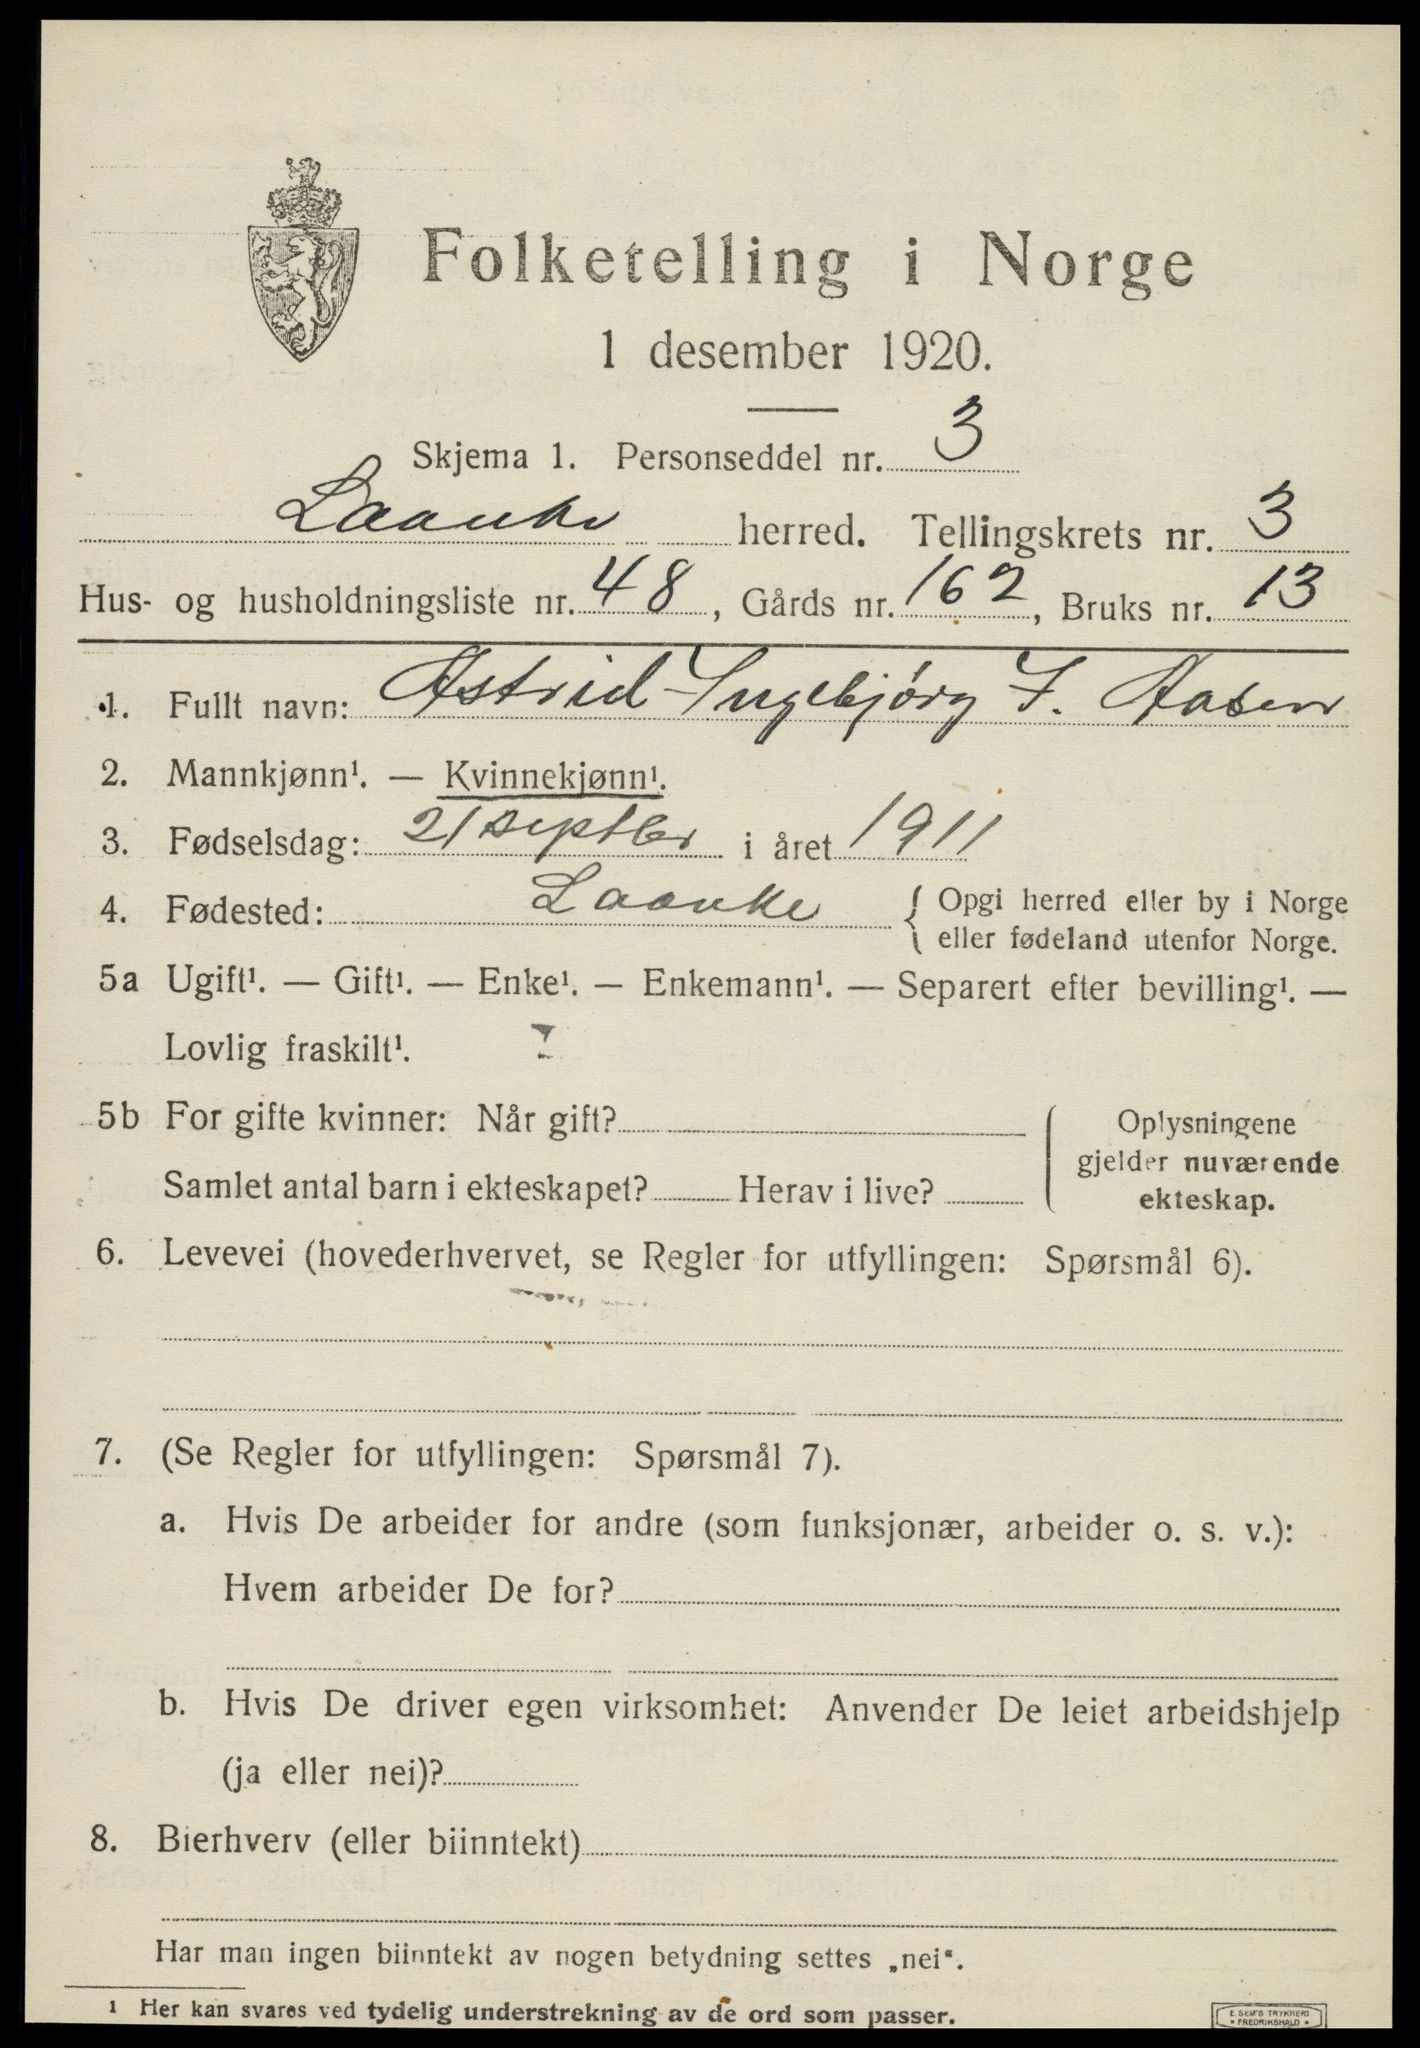 Folketelling i Norge
1 desember 1920.
Skjema 1. Personseddel nr. 3
Laanke herred. Tellingskrets nr. 3
Hus- og husholdningsliste nr. 48, Gårds nr. 162, Bruks nr. 13
1. Fullt navn: Astrid Ingebjørg I. Aasen
2. Mannkjønn¹. — Kvinnekjønn¹.
3. Fødselsdag: 21 septbr i året 1911
4. Fødested: Laanke { Opgi herred eller by i Norge
eller fødeland utenfor Norge.
5a Ugift¹. — Gift¹. — Enke¹. — Enkemann¹. — Separert efter bevilling¹. —
Lovlig fraskilt¹.
5b For gifte kvinner: Når gift?
Samlet antal barn i ekteskapet? Herav i live?
Oplysningene
gjelder nuværende
ekteskap.
6. Levevei (hovederhvervet, se Regler for utfyllingen: Spørsmål 6).
7. (Se Regler for utfyllingen: Spørsmål 7).
a. Hvis De arbeider for andre (som funksjonær, arbeider o. s. v.):
Hvem arbeider De for?
b. Hvis De driver egen virksomhet: Anvender De leiet arbeidshjelp
(ja eller nei)?
8. Bierhverv (eller biinntekt)
Har man ingen biinntekt av nogen betydning settes „nei“.
1 Her kan svares ved tydelig understrekning av de ord som passer.
E. SEM'S TRYKKERI
• FREDRIKSHALD •